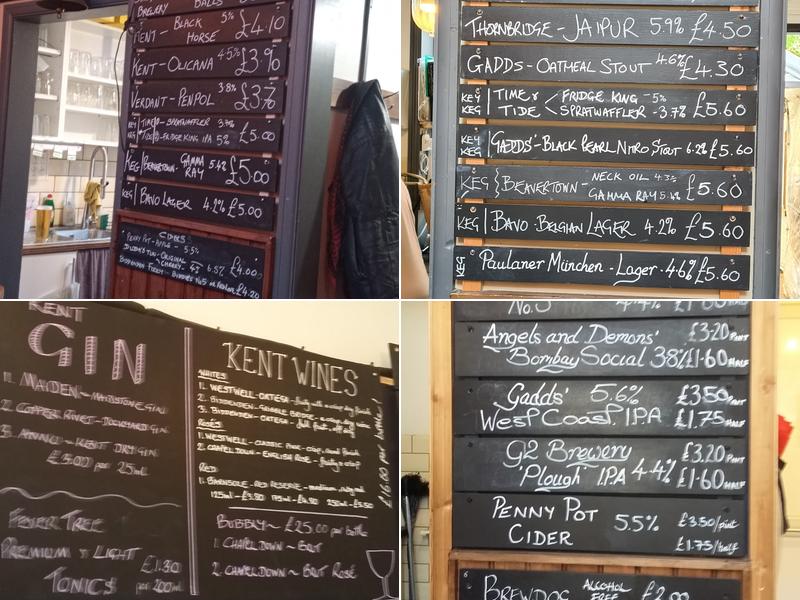 BREWERY BALLS
KENT - BLACK HORSE 5% £4.10
KENT - OLICANA 4.5% £3.90
VERDANT - PENPOL 3.8% £3.70
KEY KEG TIME & TIDE - SPRATWAFFLER 3.7%
TIDE - FRIDGE KING IPA 5% £5.00
KEG BEAVERTOWN - GAMMA RAY 5.4% £5.00
KEG BAVO LAGER 4.2% £5.00
CIDERS
PENNY POT - APPLE - 5.5%
DUDDA'S TUN - ORIGINAL
CHERRY 6.5% £4.00
£4.20
THORNBRIDGE - JAIPUR 5.9% £4.50
GADDS - OATMEAL STOUT 4.6% £4.30
KEY KEG TIME & TIDE < FRIDGE KING - 5%
SPRATWAFFLER - 3.7% £5.60
KEY KEG 'GADDS' - BLACK PEARL NITRO STOUT 6.2% £5.60
KEG } BEAVERTOWN - NECK OIL 4.3%
GAMMA RAY 5.4% £5.60
KEG BAVO - BELGIAN LAGER 4.2% £5.60
KEG Paulaner München - Lager - 4.6% £5.60
KENT
GIN
1. MAIDEN ~ MAIDSTONE GIN
2. COPPER RIVET - DOCKYARD GIN
3. ANNO ~ KENT DRY GIN
£5.00 per 25ml
FEVER TREE
PREMIUM & LIGHT
TONICS £1.30 per 200ml
KENT WINES
WHITES
1. WESTWELL - ORTEGA - fruity with a crisp dry finish
2. BIDDENDEN - GRIBBLE BRIDGE - crisp dry wine
3. BIDDENDEN - ORTEGA - full fruit, off dry
ROSÉ
1. WESTWELL - CLASSIC PINK - crisp, and fresh
2. CHAPEL DOWN - ENGLISH ROSE - fruity & crisp
RED
1. BARNSOLE - RED RESERVE - medium
125ml - £3.80 175ml - £4.80 250ml - £5.50
£16.00 per bottle!
BUBBLY ~ £25.00 per bottle
1. CHAPEL DOWN ~ BRUT
2. CHAPEL DOWN ~ BRUT ROSÉ
No.3 4.4% £1.60 HALF
Angels and Demons' £3.20 PINT
Bombay Social 3.8% £1.60 HALF
Gadds' 5.6% £3.50 PINT
West Coast IPA £1.75 HALF
G2 Brewery £3.20 PINT
'Plough' IPA 4.4% £1.60 HALF
PENNY POT CIDER 5.5% £3.50/pint
£1.75/half
6
BREWDOG ALCOHOL FREE £2.00